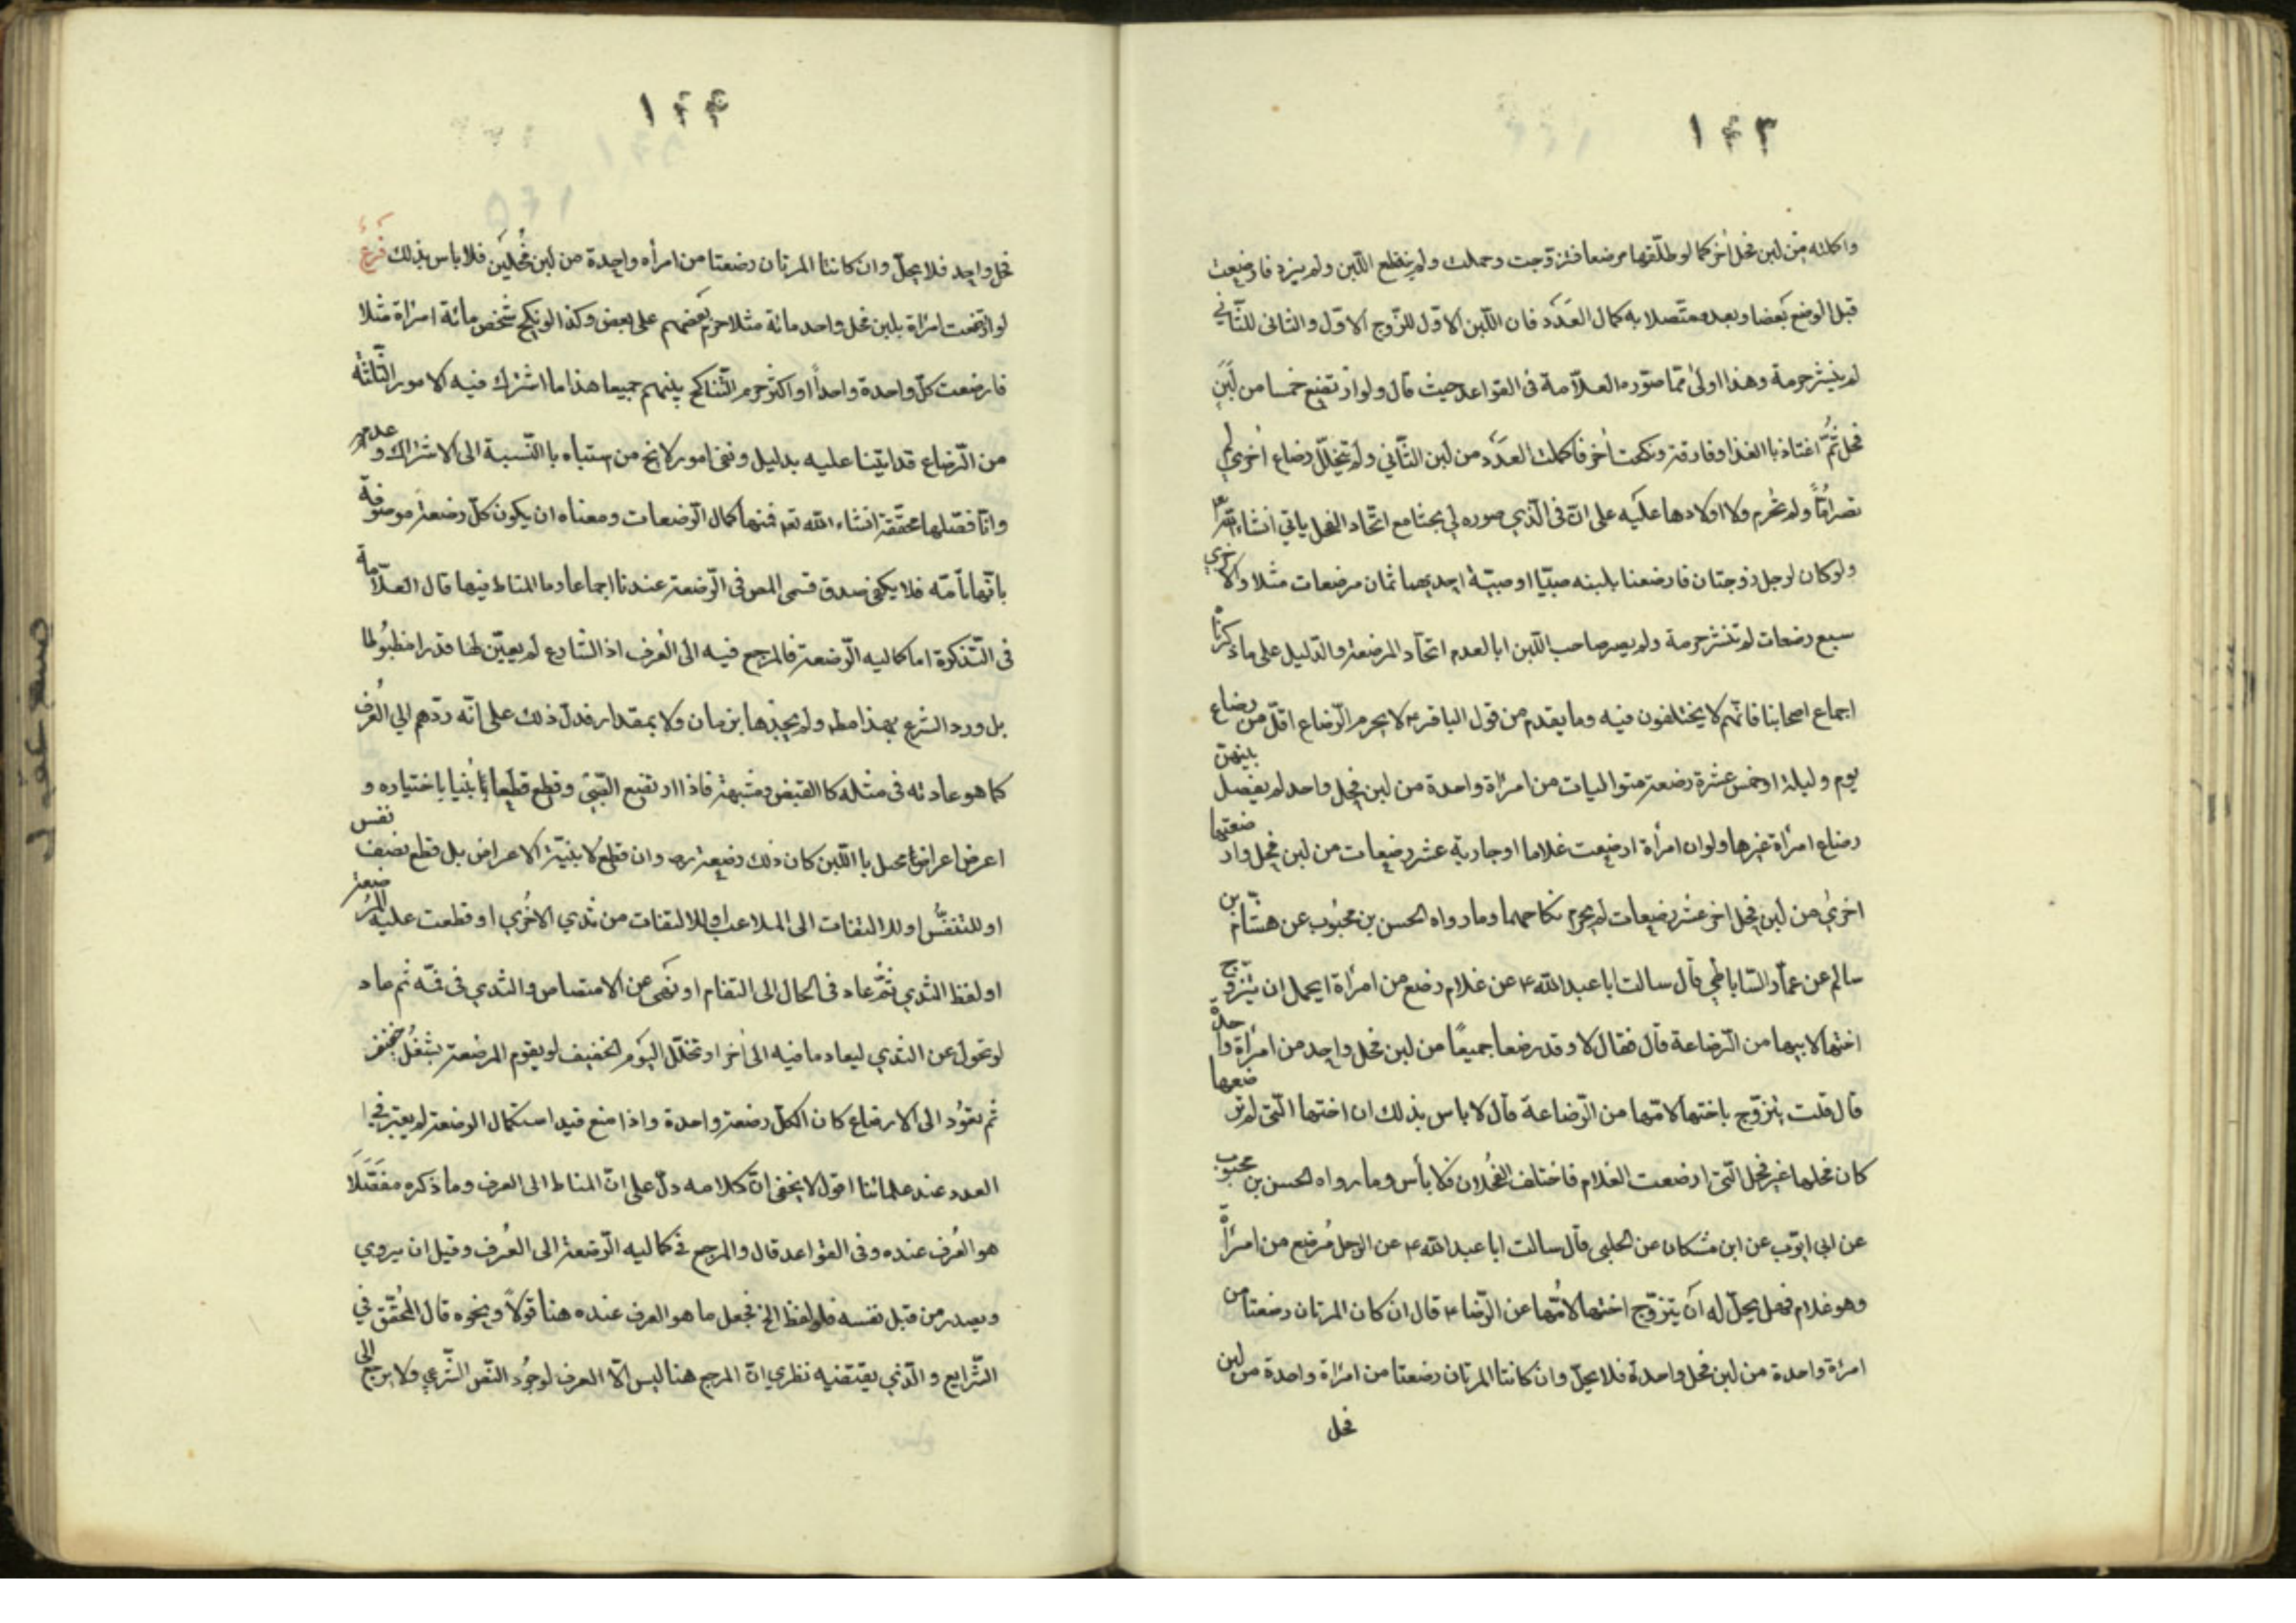 ۱۴۳
واكملته من لبن فحل آخر كما لو طلّقها مرضعا فتزوّجت وحملت ولم ينقطع اللّبن ولم يزد فارضعت
قبل الوضع بعضا وبعده متّصلا به كمال العدد فان اللّبن الاوّل للزّوج الاوّل والثانى للثّاني
لم ينشر حرمة وهذا اولى ممّا صوّره العلّامة فى القواعد حيث قال ولو ارتضع خمسا من لبن
فحل ثمّ اغتاذ با الغذا وفارقته ونكحت اخر فاكملت العدد من لبن الثّاني ولم يتخلّل رضاع اخرى لم
تصر امّا ولم تحرم ولا اولادها عليه على انّ فى الّذي صوره لي بحثا مع اتّحاد الفحل ياتي انشاء الله
ولو كان لرجل زوجتان فارضعتا بلبنه صبيّا او صبيّة احديهما ثمان مرضعات مثلا والاخرى
سبع رضعات لم تنشر حرمة ولم يصر صاحب اللّبن ابا لعدم اتحاد المرضعة والدّليل على ما ذكرناه
اجماع اصحابنا فانّهم لا يختلفون فيه وما يقدم من قول الباقر ع لا يحرم الرّضاع اقلّ من رضاع
يوم وليلة او خمس عشرة رضعة متواليات من امراة واحدة من لبن فحل واحد لم يفصل بينهنّ
رضاع امراة غيرها ولو ان امرأة ارضعت غلاما او جارية عشر رضعات من لبن فحل وارضعتها
اخرى من لبن فحل اخر عشر رضعات لم يحرم نكاحهما وما رواه الحسن بن محبوب عن هشام بن
سالم عن عمّار السّاباطي قال سالت ابا عبد الله ع عن غلام رضع من امرأة ايحل ان يتزوّج
اختها لابيها من الرّضاعة قال فقال لا وقد رضعا جميعًا من لبن فحل واحد من امرأة واحدة
قال قلت يتزوّج باختها لامّها من الرّضاعة قال لا باس بذلك ان اختها الّتى لم ترضعها
كان فحلها غير فحل الّتى ارضعت الغلام فاختلف الفحلان فلا بأس وما رواه الحسن بن محبوب
عن ابى ايّوب عن ابن مسكان عن الحلبى قال سالت ابا عبد الله ع عن الرجل يرضع من امرأة
وهو غلام فهل يحلّ له ان يتزوّج اختها لامّها عن الرّضا ع قال ان كان المرتان رضعتا من
امرأة واحدة من لبن فحل واحدة فلا يحلّ وان كانتا المرتان رضعتا من امراة واحدة من لبن
فحل
۱۴۴
فحل واحد فلا يحلّ وان كانتا المرتان رضعتا من امرأه واحدة من لبن فحلين فلا باس بذلك فرع
لو ارتضعت امراة بلبن فحل واحد مائة مثلا حرم بعضهم على بعض وكذا لو نكح شخص مائة امراة مثلا
فارضعت كلّ واحدة واحداً او اكثر حرم التّناكح بينهم جميعا هذا ما اشترك فيه الامور الثّلثه
من الرّضاع قد ابتنا عليه بدليل ونفى امور لا يخ من استباه با النّسبة الى الاشتراك وعدمه
وانّا فصّلها محقّقة انشاء الله تعه فمنها كمال الرّضعات ومعناه ان يكون كلّ رضعة موصوفة
بانّها تامّه فلا يكفى صدق قسمى المص فى الرّضعة عندنا اجماعا وما المناط فيها قال العلّامة
فى التّذكرة اما كماليه الرّضعة فالمرجع فيه الى العُرف اذ الشّارع لم يعيّن لها قدرا مظبُوطا
بل ورد الشرع بهذا مطه ولم يحدّها بزمان ولا بمقدار فدلّ ذلك على انّه ردّهم الى العُرف
كما هو عادته فى مثله كا القبض وشبهه فاذا ارتضع الصّبىّ وقطع قطعا بيّنا باختياره و
اعرض اعراض محصل با اللّبن كان ذلك رضعة ره وان قطع لا بنيّة الاعراض بل قطع بضيق نفس
او للتنفّس او للالتفات الى الملاعب او للالتفات من ثدي الاخرى او قطعت عليه المرضعة
او لفظ الثدي ثمّ عاد فى الحال الى التقام او نهى عن الامتصاص والثدي فى فمّه ثم عاد
لو تحول عن الثدي ليعاد ما فيه الى اخر او تخلّل النوم الخفيف لو يقوم المرضعة بشغل خفيف
ثم تعود الى الارضاع كان الكلّ رضعة واحدة واذا منع قيد استكمال الرضعة لم يعتبر فى
العدد عند علمائنا اقول لا يخفى انّ كلامه دلّ على انّ المناط الى العرف وما ذكره مفصّلا
هو العُرف عنده وفى القواعد قال والمرجع فى كماليه الرّضعة الى العُرف وقيل ان يروي
ويصدر من قبل نفسه فلو لفظ الخ فجعل ما هو العرف عنده هنا قولًا وبنحوه قال المحقّق في
الشّرايع والّذي يقتضيه نظري انّ المرجع هنا ليس الّا العرف لوجود النّص الشّرعي ولا يرجع الى